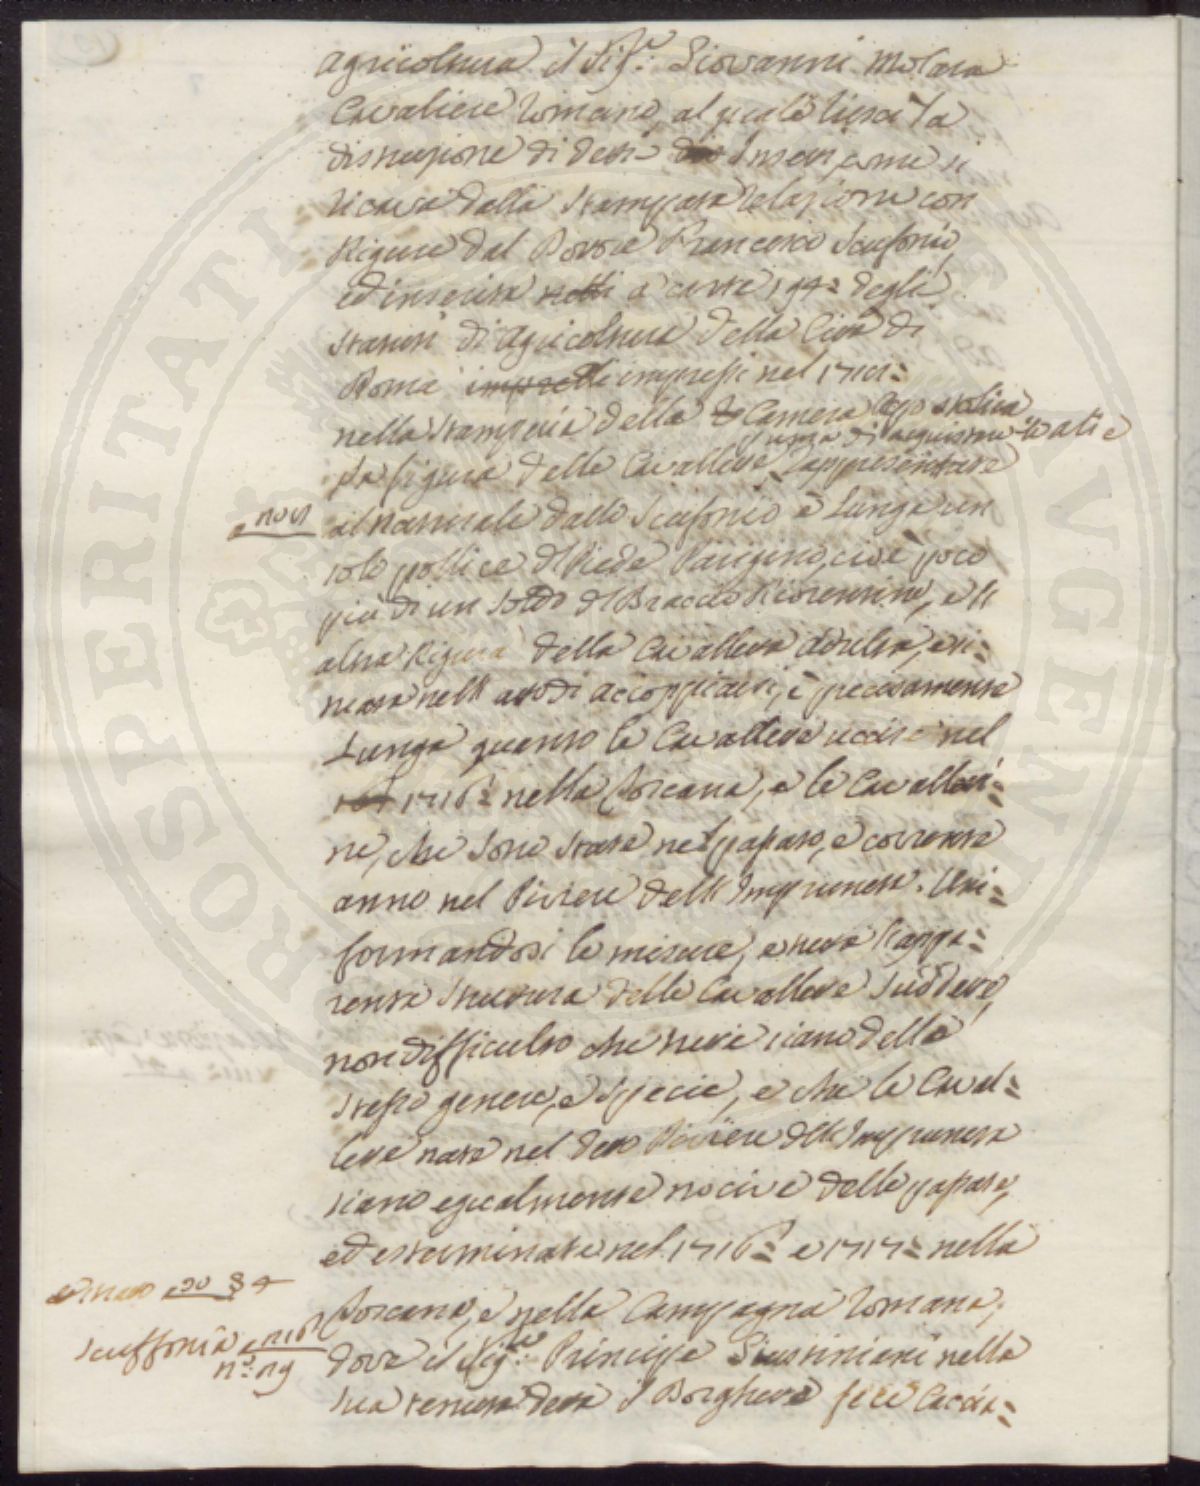 agricoltura il Sig.re Giovanni Molara
Cavaliere Romano, al quale riescì la
distruzione di detti Insetti, come si
ricava dalla stampata relazione con
Figure dal Dottore Francesco Scufonio,
ed inserita a carte 194: degli
statuti di Agricoltura della Città di
Roma impressi nel 1718:
nella stamperia della Camera Apostolica
La figura delle Cavallette rappresentate
prima di acquistare le ali e
al naturale dallo Scufonio è Lunga un
solo pollice di Piede Parigino, cioè poco
più di un soldo di Braccio Fiorentino, e l'
altra Figura della Cavalletta adulta, e ri=
tratta nell' atto di accoppiarsi, è precisamente
Lunga quanto le Cavallette uccise nel
1716: nella Toscana, e le Cavallett=
ne, che sono state nel passato, e corrente
anno nel Piviere dell' Impruneta. Uni=
formandosi le misure, e tutta l'appa=
rente struttura delle Cavallette suddette,
non difficulto che tutte siano dello
stesso genere, e specie, e che le Caval=
lette nate nel detto Piviere dell' Impruneta
siano egualmente nocive delle passate,
ed esterminate nel 1716: e 1717: nella
Toscana, e nella Campagna Romana,
dove il Sig.re Principe Giustiniani nella
sua tenuta detta il Borghetto fece Caccia=
Scuffonio
n.o 19